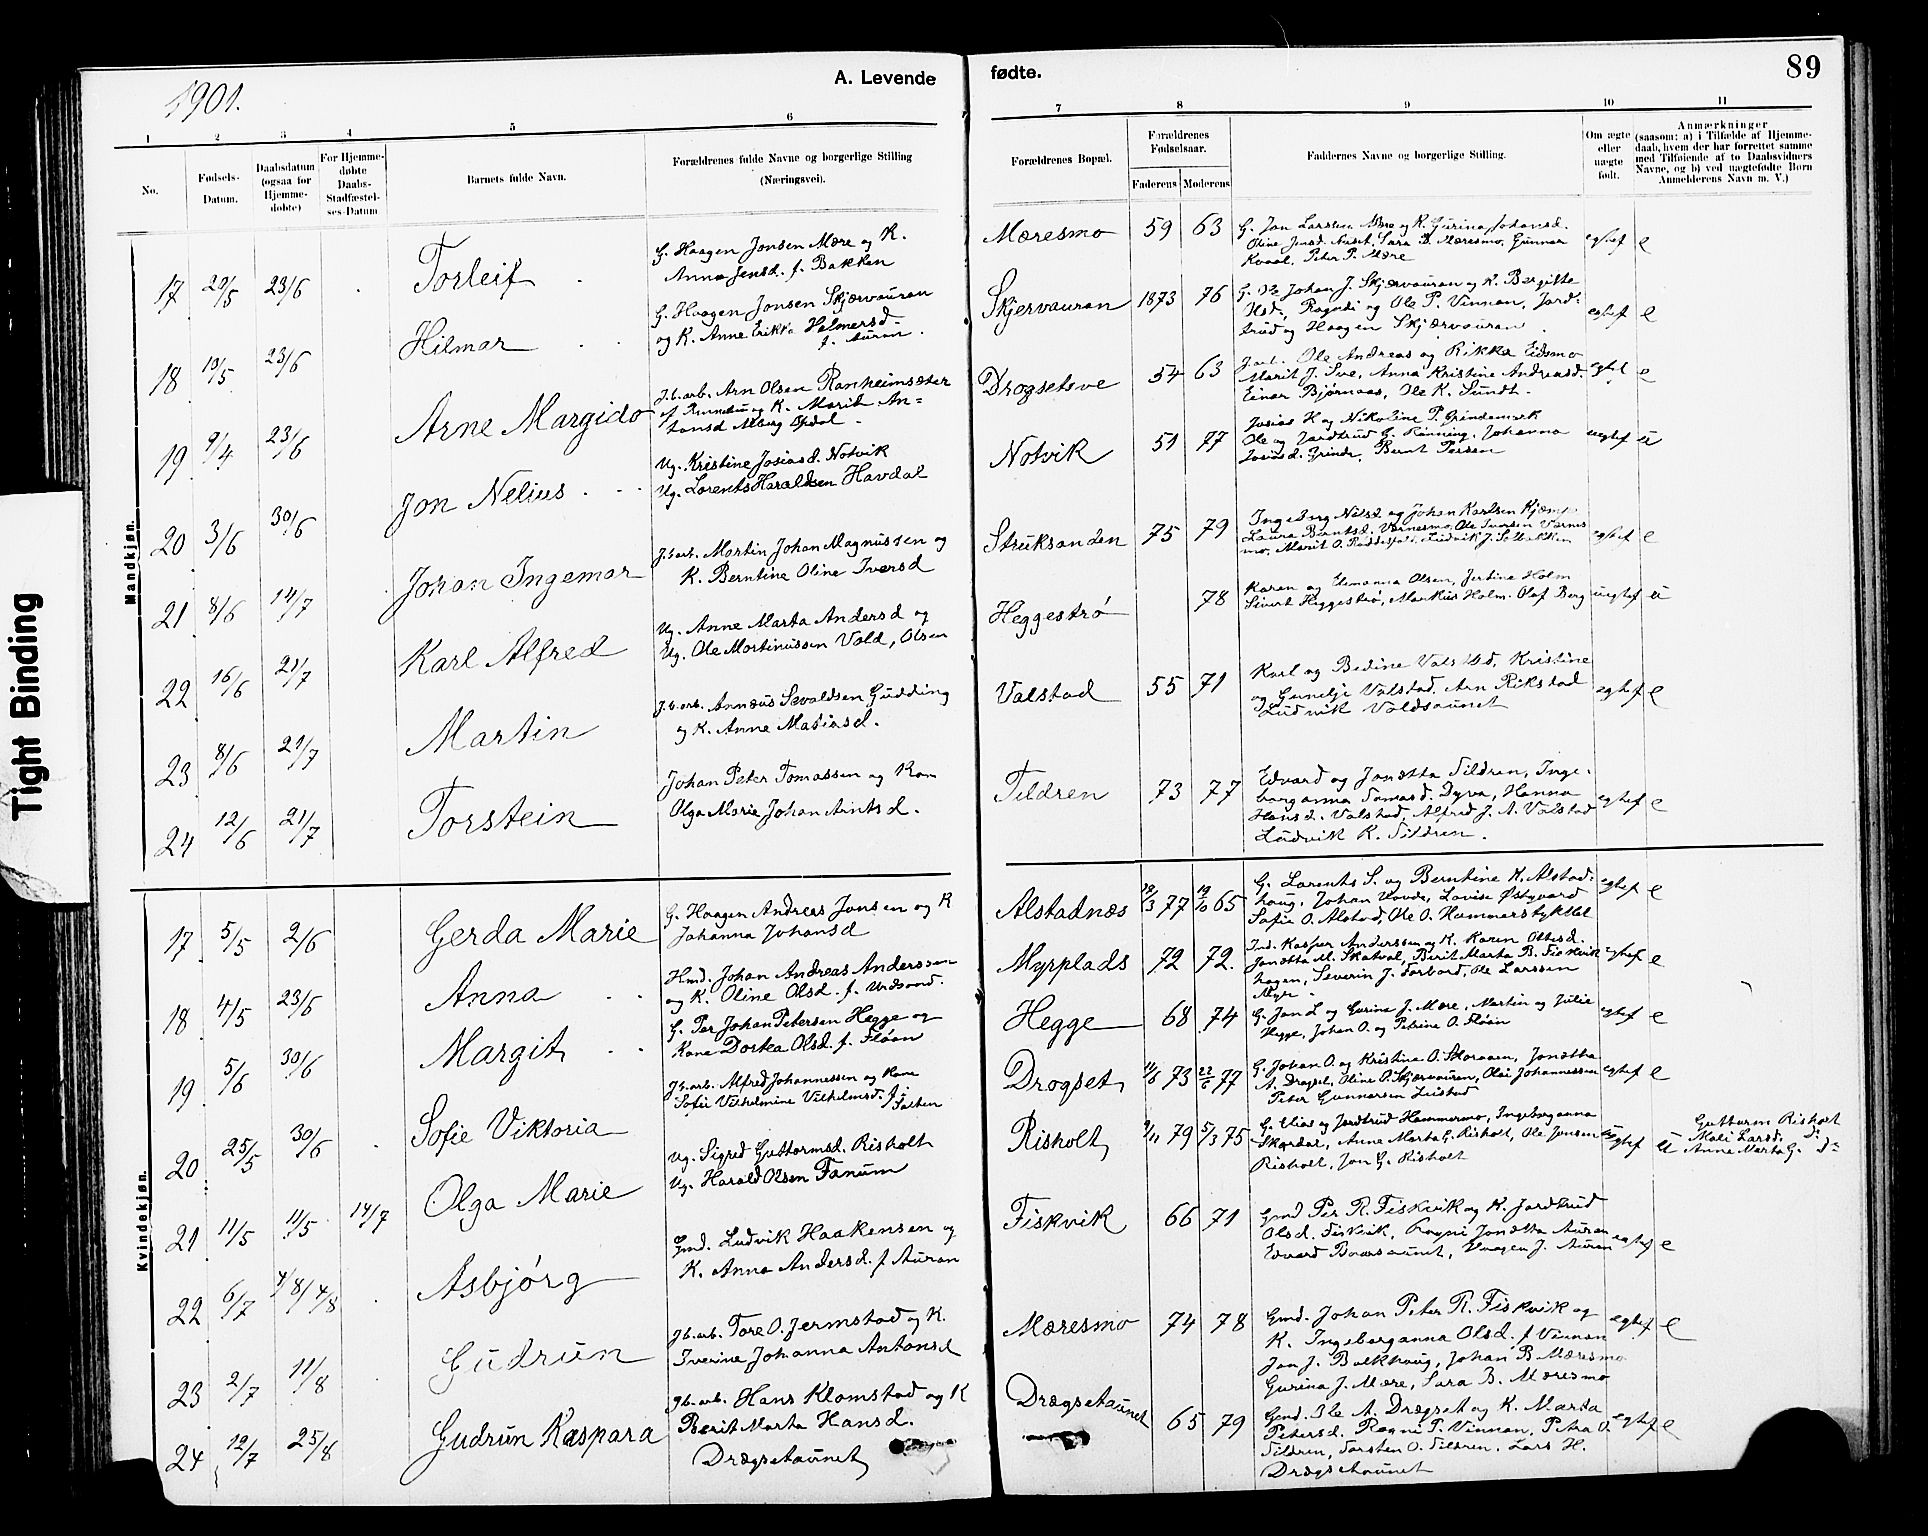 Tight Binding
1901.
A. Levende
fødte.
89
1 2 3 4 5 6 7 8 9 10 11
No.
Fødsels-
Datum.
Daabsdatum
(ogsaa for
Hjemme-
døbte)
For Hjemme-
døbte
Daabs-
Stadfæstel-
ses-Datum
Barnets fulde Navn.
Forældrenes fulde Navne og borgerlige Stilling
(Næringsvei).
Forældrenes Bopæl.
Forældrenes
Fødselsaar.
Faderens Moderens
Faddernes Navne og borgerlige Stilling.
Om ægte
eller
uægte
født.
Anmærkninger
(saasom: a) i Tilfælde af Hjemme-
daab, hvem der har forrettet samme
med Tilføiende af to Daabsvidners
Navne, og b) ved uægtefødte Born
Anmelderens Navn m. V.)
Mandkjøn.
17 20/5 23/6 Torleif
G. Haagen Jonsen Mære og K.
Anna Jensd. f. Bakken
Mæresmo 59 63
G. Jon Larssen Mære og K. Gurina Johansd.
Oline Jensd. Sara B. Mæresmo, Gunnar
Kvaal, Peter P. Mære
egtef e
18 10/5 23/6 Hilmar
G. Haagen Jonsen Skjærvauran
og K. Anne Erikka Halmersd.
f. Auran
Skjervauran 1873 76
G. Ole Johan J. Skjærvauran og K. Bergitte
Ragndi og Ole P. Vinnan, Jard-
trud og Haagen Skjærvauran
egtef e
19 9/4 23/6 Arne Margido
J.b.arb. Arn Olsen Ranheimsæter
af Rennebu og K. Marit An-
tonsd Moberg Opdal
Drogsetsve 54 63
J.arb. Ole Andreas og Rikka Eidsmo
Marit J. Sve, Anna Kristine Andreasd.
Einar Bjørnaas, Ole K. Sundt.
egtef e
20 3/6 30/6 Jon Nelius
Ug. Kristine Josiasd. Notvik
Ug. Lorents Haraldsen Havdal
Notvik 51 77
Josias K og Nikoline P. Grindemark
Ole og Jardtrud G. Rønning, Johanna
Josiasd. Grinde, Bernt Perssen
uegtef u
21 8/6 14/7 Johan Ingemar
J.b.arb. Martin Johan Magnussen og
K. Berntine Oline Iversd
Struksanden 75 79
Ingeborg Nilsd. og Johan Karlsen Kjæmp
Laura Berntsd. Værnesmo, Ole Iversen Værnes
mo, Marit O. Ludvik J. Solbakken
egtef e
22 16/6 21/7 Karl Alfred
Ug. Anne Marta Andersd og
Ug. Ole Martinussen Vold, Olsen
Heggestrø 78
Karen og Elemanna Olsen, Jertine Holm
Sivert Heggestrø, Markus Holm. Olaf Berg
uegtef u
23 8/6 21/7 Martin
J.b.arb. Annæus Sevaldsen Gudding
og K. Anne Masiasd.
Valstad 55 71
Karl og Bedine Valstad, Kristine
og Gunelje Valstad. Arn Rikstad
Ludvik Valdsaunet
egtef e
24 12/6 21/7 Torstein
Johan Peter Tomassen og Kon
Olga Marie Johan Arntsd.
Tildren 73 77
Edvard og Jonetta Tildren, Inge-
borganna Tomasd. Dyva, Hanna
Hansd. Valstad, Alfred J. A. Valstad
Ludvik K. Tildren.
egtef e
Kvindekjøn.
17 5/5 2/6 Gerda Marie
G. Haagen Andreas Jonsen og K
Johanna Johansd
Alstadnæs 12/3 77 19/10 65
G. Lorents S. og Berntine K. Alstad-
haug, Johan Lovise Østgaard
Sofie O. Alstad, Ole O. Hammerstykket
egtef e
18 4/5 23/6 Anna
Hmd. Johan Andreas Anderssen
og K. Oline Olsd. f.
Myrplads 72 72.
Ind. Kasper Anderssen og K. Karen
Jonetta M. Skatval, Birit Marta B. Fiskvik
hagen, Severin J. Forbord, Ole Larssen
Myr
egtef e
19 5/6 30/6 Margit
G. Per Johan Petersen Hegge og
Kone Dortea Olsd. f. Fløan
Hegge 68 74
G. Jon L og Gurine J. Mære, Martin og Julie
Hegge, Johan O. og Petrine O. Fløan
egtef e
20 25/5 30/6 Sofie Viktoria
J.b.arb. Alfred Johannessen og Kone
Sofie Vilhelmine Vilhelmsd. f. i
Salten
Drogset 11/6 73 22/6 77
G. Johan O. og Kristina O. Storaaen, Jonetta
A. Drogset, Oline O. Skjærvauran, Olai Johannessen
Peter Gunnarsen Leistad
egtef e
21 11/5 11/5 14/7 Olga Marie
Ug. Sigrid Guttormsd. Risholt
Ug. Harald Olsen Fanum
Risholt 9/11 79 5/3 75
G. Elias og Jardtrud Hammermo, Ingeborganna
Skordal, Anne Marta G. Risholt, Ole Jonsen
Risholt, Jon G. Risholt
uegtef u
Guttorm Risholt
Mali Larsd. do
Anne Marta G. do
22 6/7 4/8 4/8 Asbjørg
Gmd. Ludvik Haakensen og
K. Anna Andersd. f Auran
Fiskvik 66 71
Gmd Per R. Fiskvik og K. Jardtrud
Olsd. Fiskvik, Ragni Jonetta Auran
Edvard Haagen J. Auran
egtef e
23 2/7 11/8 Gudrun
J.b.arb. Tore O. Jermstad og K.
Iverine Johanna Antonsd
Mæresmo 74 78
Gmd. Johan Peter R. Fiskvik og
K. Ingeborganna Olsd. f Vinnan
Jon J. Balkhaug, Johan B Mæresmo
Gurina J. Mære, Sara B. Mæresmo
egtef e
24 12/7 25/8 Gudrun Kaspara
J.b.arb. Hans Klomstad og K
Berit Marta Hansd.
Drægsetaunet
Drægsetaunet 65 79
Gmd. Ole A. Drægset og K. Marta
Petersd. Ragni P. Vinnan, Petra O.
Tildren, Torsten O. Tildren, Lars H.
Drægsetaunet
egtef e